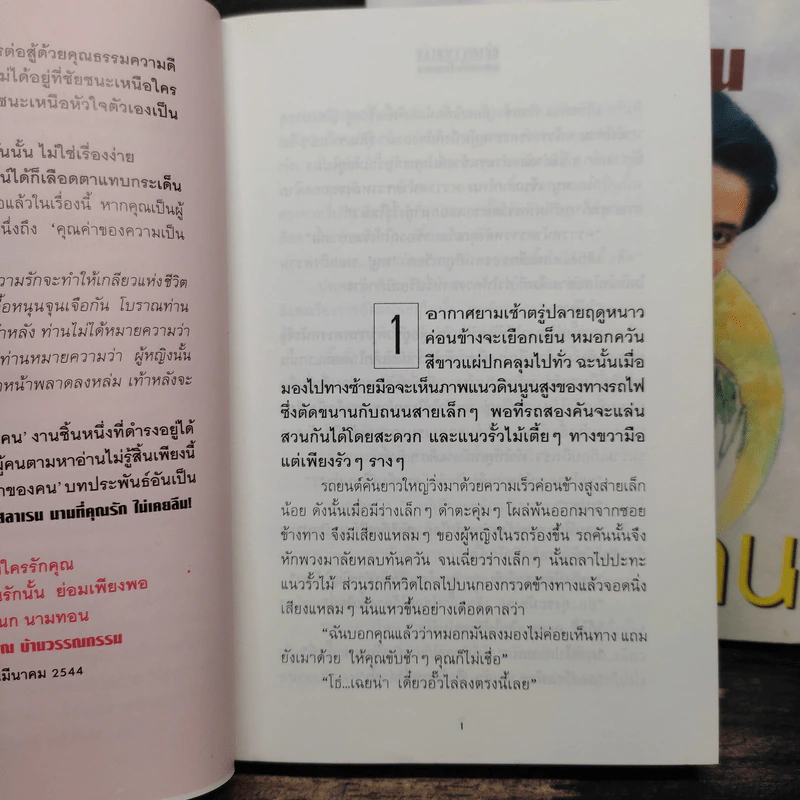 รต่อสู้ด้วยคุณธรรมความดี
ม่ได้อยู่ที่ชัยชนะเหนือใคร
ชนะเหนือหัวใจตัวเองเป็น
นนั้น ไม่ใช่เรื่องง่าย
น์ได้ก็เลือดตาแทบกระเด็น
อแล้วในเรื่องนี้ หากคุณเป็นผู้
นึ่งถึง 'คุณค่าของความเป็น
วามรักจะทำให้เกลียวแห่งชีวิต
อื้อหนุนจุนเจือกัน โบราณท่าน
าหลัง ท่านไม่ได้หมายความว่า
ท่านหมายความว่า ผู้หญิงนั้น
หน้าพลาดลงหล่ม เท้าหลังจะ
คน' งานชิ้นหนึ่งที่ดำรงอยู่ได้
ผู้คนตามหาอ่านไม่รู้สิ้นเพียงนี้
าของคน' บทประพันธ์อันเป็น
สลาเรม นามที่คุณรัก ไม่เคยลืม!
ใครรักคุณ
รักนั้น ย่อมเพียงพอ
นก นามทอน
ณ บ้านวรรณกรรม
มีนาคม 2544
1
อากาศยามเช้าตรู่ปลายฤดูหนาว
ค่อนข้างจะเยือกเย็น หมอกควัน
สีขาวแผ่ปกคลุมไปทั่ว ฉะนั้นเมื่อ
มองไปทางซ้ายมือจะเห็นภาพแนวดินนูนสูงของทางรถไฟ
ซึ่งตัดขนานกับถนนสายเล็กๆ พอที่รถสองคันจะแล่น
สวนกันได้โดยสะดวก และแนวรั้วไม้เตี้ยๆ ทางขวามือ
แต่เพียงรัวๆ รางๆ
รถยนต์คันยาวใหญ่วิ่งมาด้วยความเร็วค่อนข้างสูงส่ายเล็ก
น้อย ดังนั้นเมื่อมีร่างเล็กๆ ดำตะคุ่มๆ โผล่พ้นออกมาจากซอย
ข้างทาง จึงมีเสียงแหลมๆ ของผู้หญิงในรถร้องขึ้น รถคันนั้นจึง
หักพวงมาลัยหลบทันควัน จนเฉี่ยวร่างเล็กๆ นั้นถลาไปปะทะ
แนวรั้วไม้ ส่วนรถก็หวิดไถลไปบนกองกรวดข้างทางแล้วจอดนิ่ง
เสียงแหลมๆ นั้นแหวขึ้นอย่างเดือดดาลว่า
"ฉันบอกคุณแล้วว่าหมอกมันลงมองไม่ค่อยเห็นทาง แถม
ยังเมาด้วย ให้คุณขับช้าๆ คุณก็ไม่เชื่อ"
"โธ่...เฉยน่า เดี๋ยวอั๊วไล่ลงตรงนี้เลย"
1
น
าน